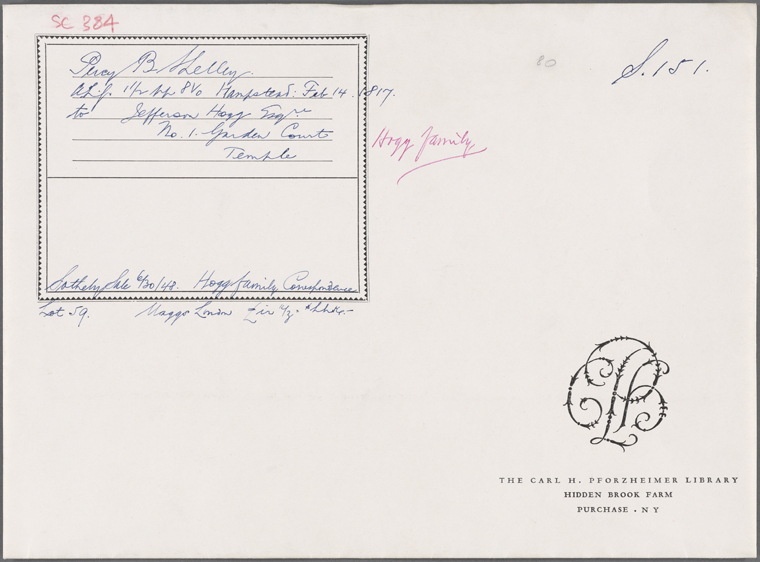 SC 384
80
S. 151.
Percy B. Shelley.
A.L.S. 1 1/2 pp 8vo Hampstead: Feb 14. 1817.
to Jefferson Hogg Esqre
No. 1. Garden Court
Temple
Hogg family
Sotheby Sale 6/30/48. Hogg family Correspondence
Lot 59. Maggs London
THE CARL H. PFORZHEIMER LIBRARY
HIDDEN BROOK FARM
PURCHASE . NY